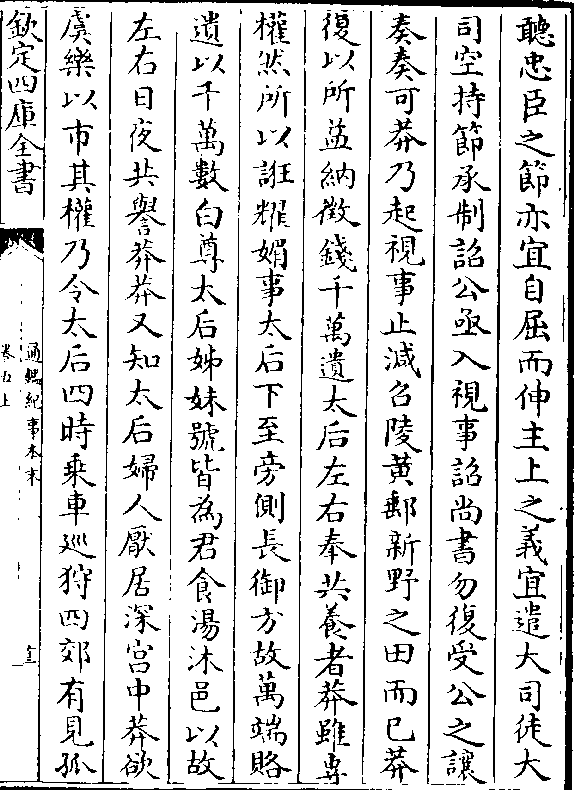 聽忠臣之節亦宜自屈而伸主上之義宜遣大司徒大
司空持節承制詔公亟入視事詔尚書勿復受公之讓
奏奏可莽乃起視事止減召陵黄郵新野之田而已莽
復以所益納徵錢千萬遺太后左右奉共養者莽雖專
權然所以誑耀媚事太后下至旁側長御方故萬端賂
遺以千萬數白尊太后姊妹號皆為君食湯沐邑以故
左右日夜共譽莽莽又知太后婦人厭居深宫中莽欲
虞樂以市其權乃令太后四時乗車巡狩四郊有見孤
欽定四庫全書
通鑑紀事本末
卷五上